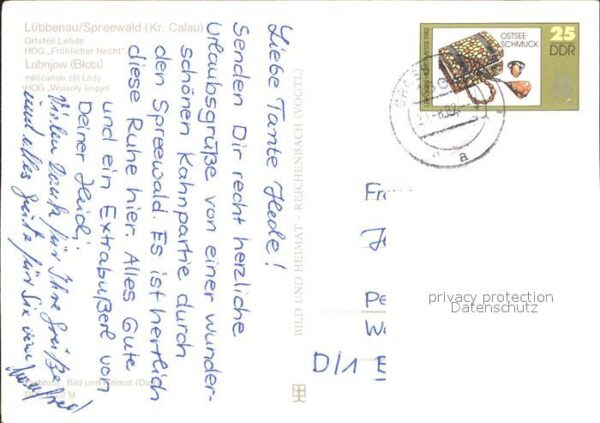 Lübbenau/Spreewald (Kr. Calau)
Ortsteil Lehde
HOG „Fröhlicher Hecht"
Lubnjow (Błota)
měšćański źěl Lědy
HOG „Wjasoły šćipjeł"
Liebe Tante Hede!
Senden Dir recht herzliche
Urlaubsgrüße von einer wunder-
schönen Kahnpartie durch
den Spreewald. Es ist herrlich
diese Ruhe hier. Alles Gute
und ein Extrabußerl von
Deiner Heidi
Vielen Dank für Ihre Grüße
und alles Gute für Sie von
Bild und Heimat
BILD UND HEIMAT · REICHENBACH (VOGTL)
OSTSEE-
SCHMUCK
25
DDR
a
Fr
Je
Pe
We
D/1 E
privacy protection
Datenschutz